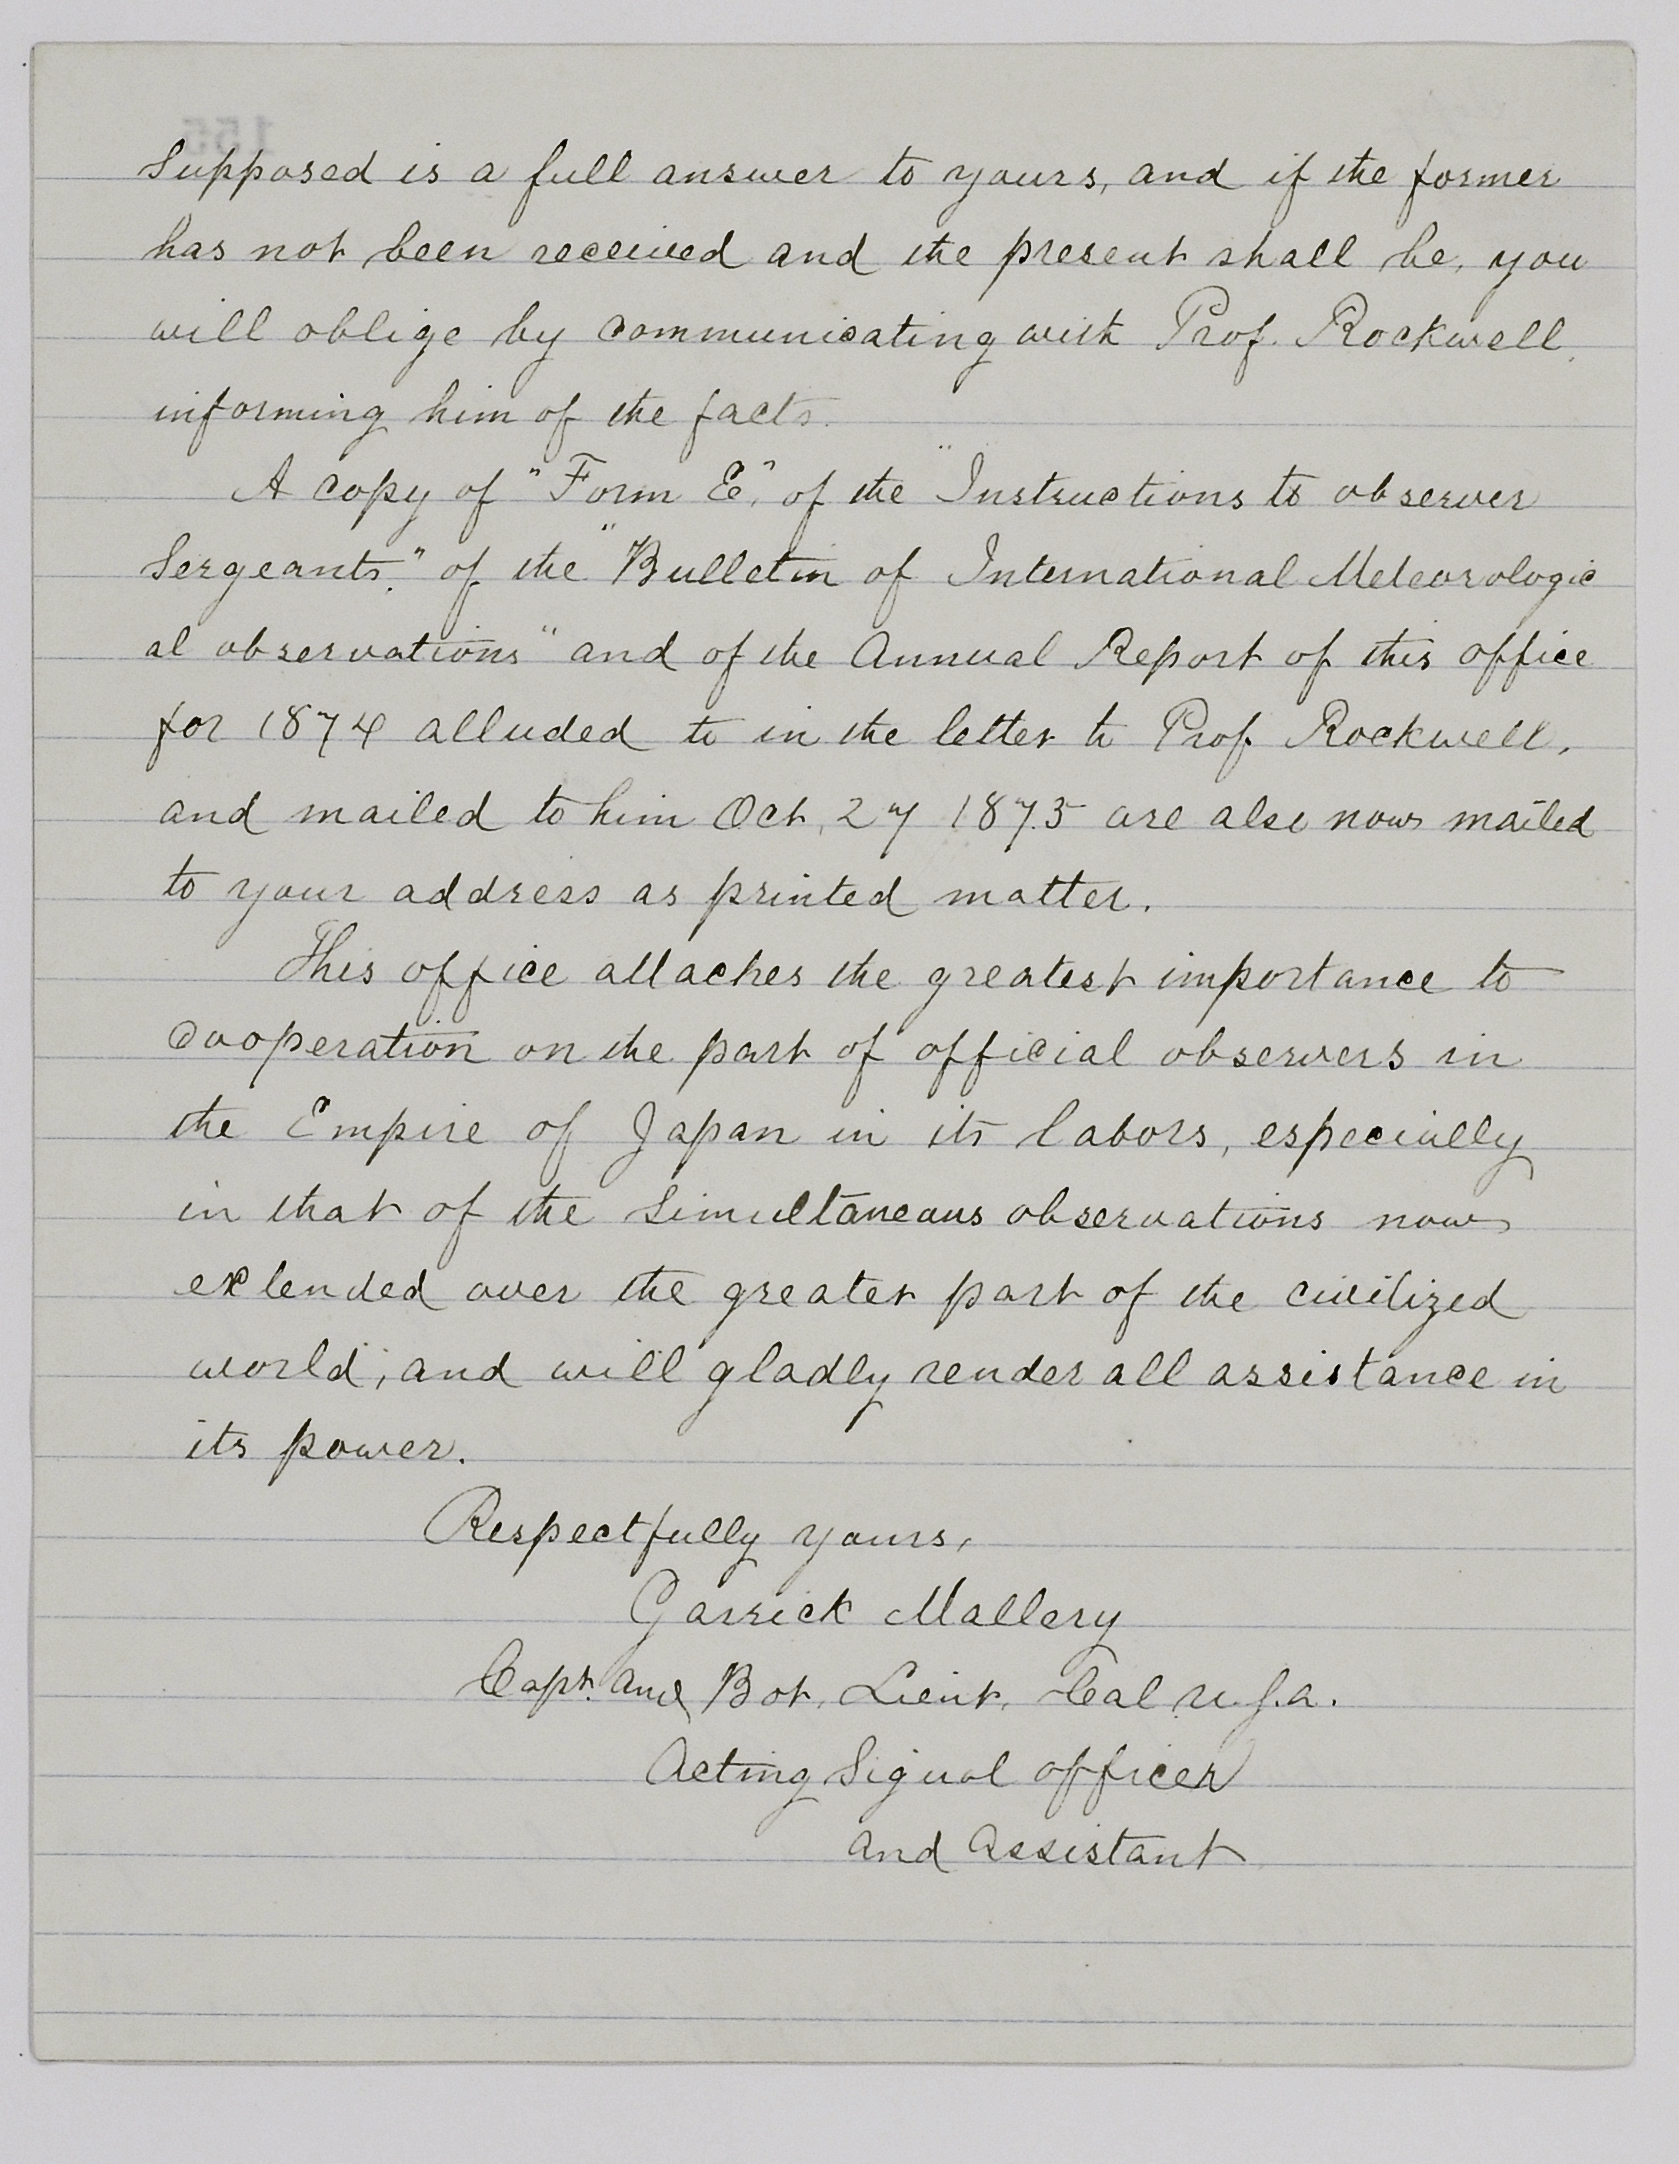 supposed is a full answer to yours, and if the former
has not been received and the present shall be, you
will oblige by communicating with Prof. Rockwell,
informing him of the facts.
A copy of "Form E", of the "Instructions to observer
Sergeants." of the "Bulletin of International Meteorologic
al observations" and of the Annual Report of this office
for 1874 alluded to in the letter to Prof. Rockwell,
and mailed to him Oct, 27 1875 are also now mailed
to your address as printed matter.
This office attaches the greatest importance to
cooperation on the part of official observers in
the Empire of Japan in its labors, especially
in that of the simultaneous observations now
extended over the greater part of the civilized
world; and will gladly render all assistance in
its power.
Respectfully yours,
Garrick Mallery
Capt. and Bot. Lieut. Col U.S.A.
Acting Signal officer
and Assistant